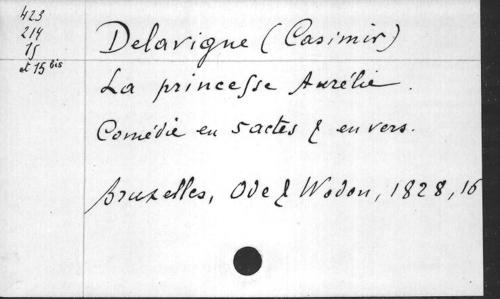 423
214
15
et 15 bis
Delavigne (Casimir)
La princesse Aurélie.
Comédie en 5 actes & en vers.
Bruxelles, Ode & Wodon, 1828, 16